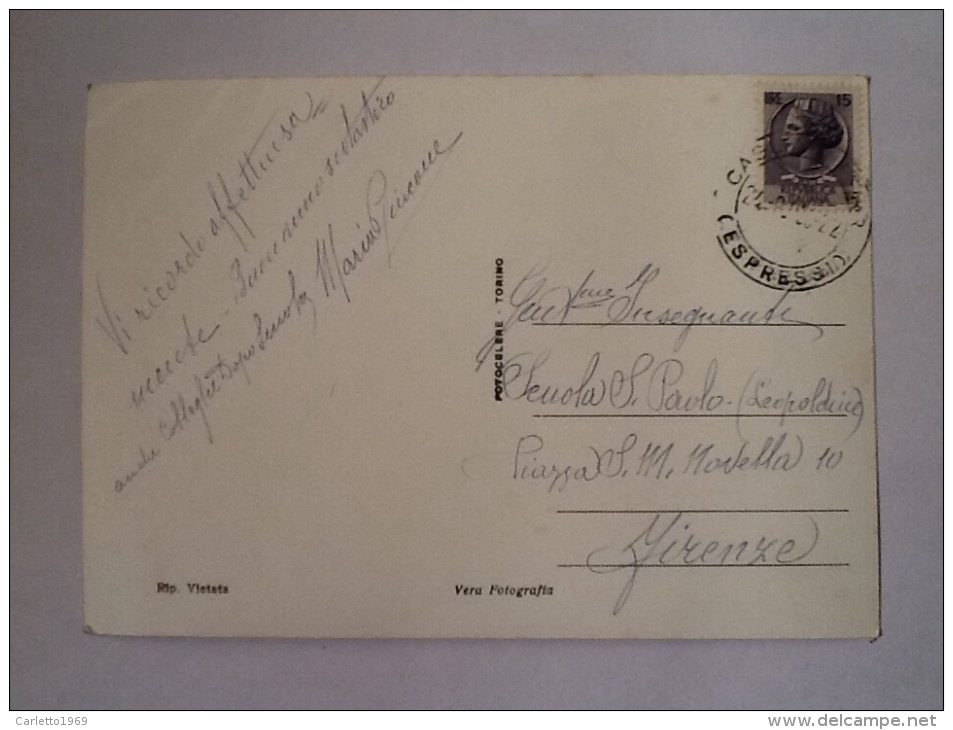 Vi ricordo affettuosa=
mente - Buon anno scolastico
anche
LIRE 15
ITALIANA
(ESPRESSI)
FOTOCELERE - TORINO
Gent.me Insegnanti
Scuola S. Paolo - (Leopoldine)
Piazza S. M. Novella 10
Firenze
Rip. Vietata
Vera Fotografia
Carletto1969
www.delcampe.net